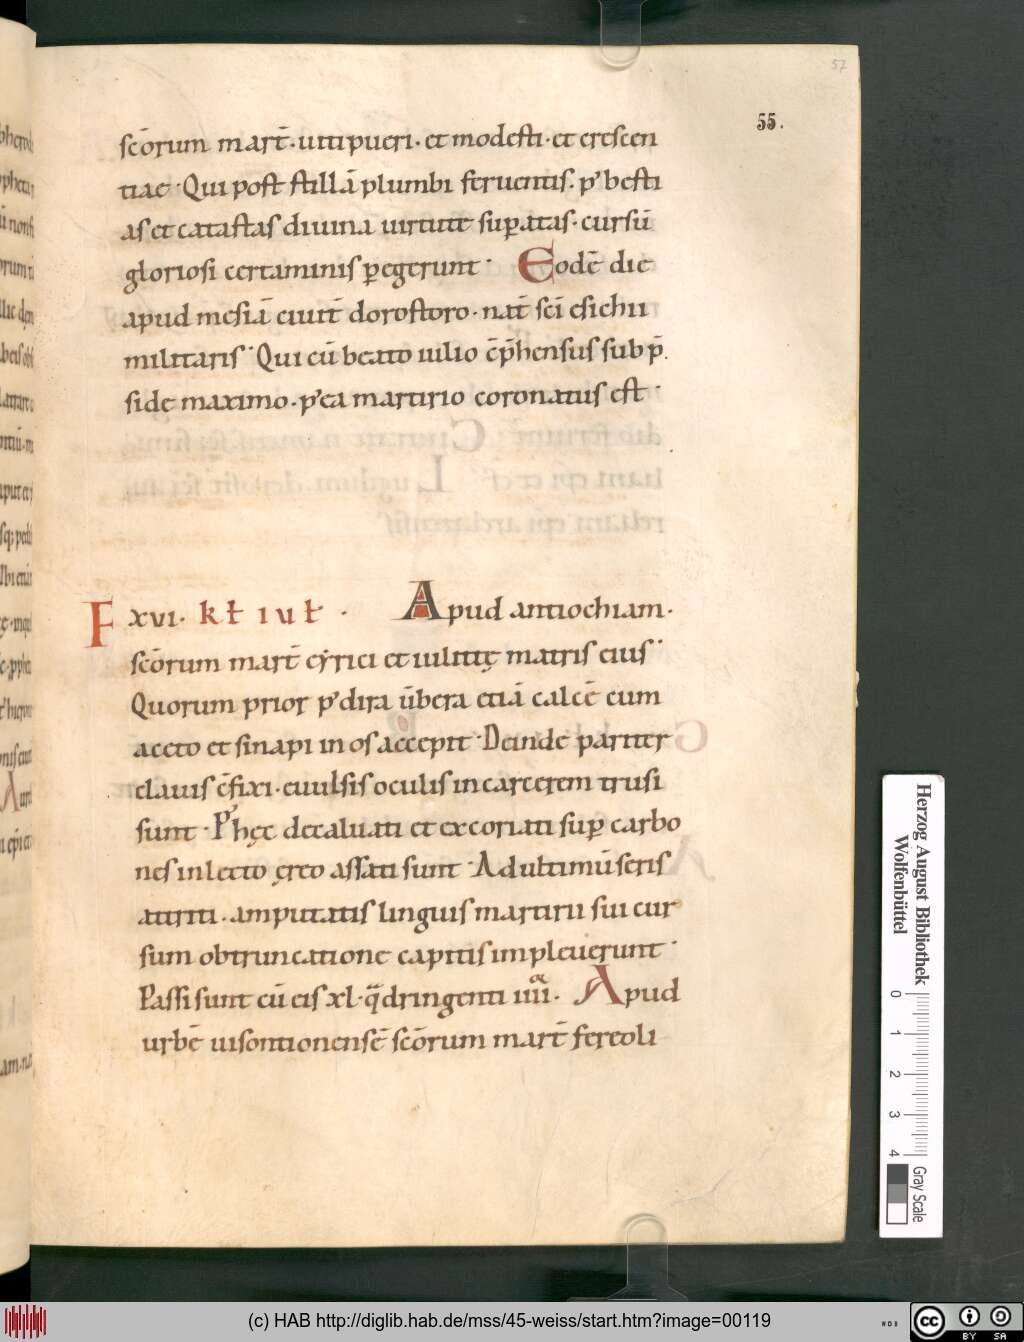 57
55.
scōrum mart̄. uiti pueri. et modesti. et crescen
tiae. Qui post stillā plumbi feruentis. p' besti
as et catastas diuina uirtute sup̱atas. cursū
gloriosi certaminis p̱egerunt. Eodē die
apud mesiā ciuit̄ dorostoro. nat̄ scī esichii
militaris. Qui cū beato iulio c̄p̄hensus sub p̄
side maximo. p' ea martirio coronatus est.
F xvi. kł iuł. Apud antiochiam.
scōrum mart̄ cẏrici et iulittę matris eius.
Quorum prior p' dira ūbera etiā calcē cum
aceto et sinapi in os accepit. Deinde pariter
clauis c̄fixi. euulsis oculis in carcerem trusi
sunt. P' hęc decaluati et excoriati sup̱ carbo
nes in lecto ęreo assati sunt. Ad ultimū seris
attriti. amputatis linguis martirii sui cur
sum obtruncatione capitis impleuerunt.
Passi sunt cū eis xl. q̄dringenti iiii. Apud
urbē uisontionensē scōrum mart̄ fereoli
Herzog August Bibliothek
Wolfenbüttel
0 1 2 3 4
Gray Scale
(c) HAB http://diglib.hab.de/mss/45-weiss/start.htm?image=00119
cc BY SA